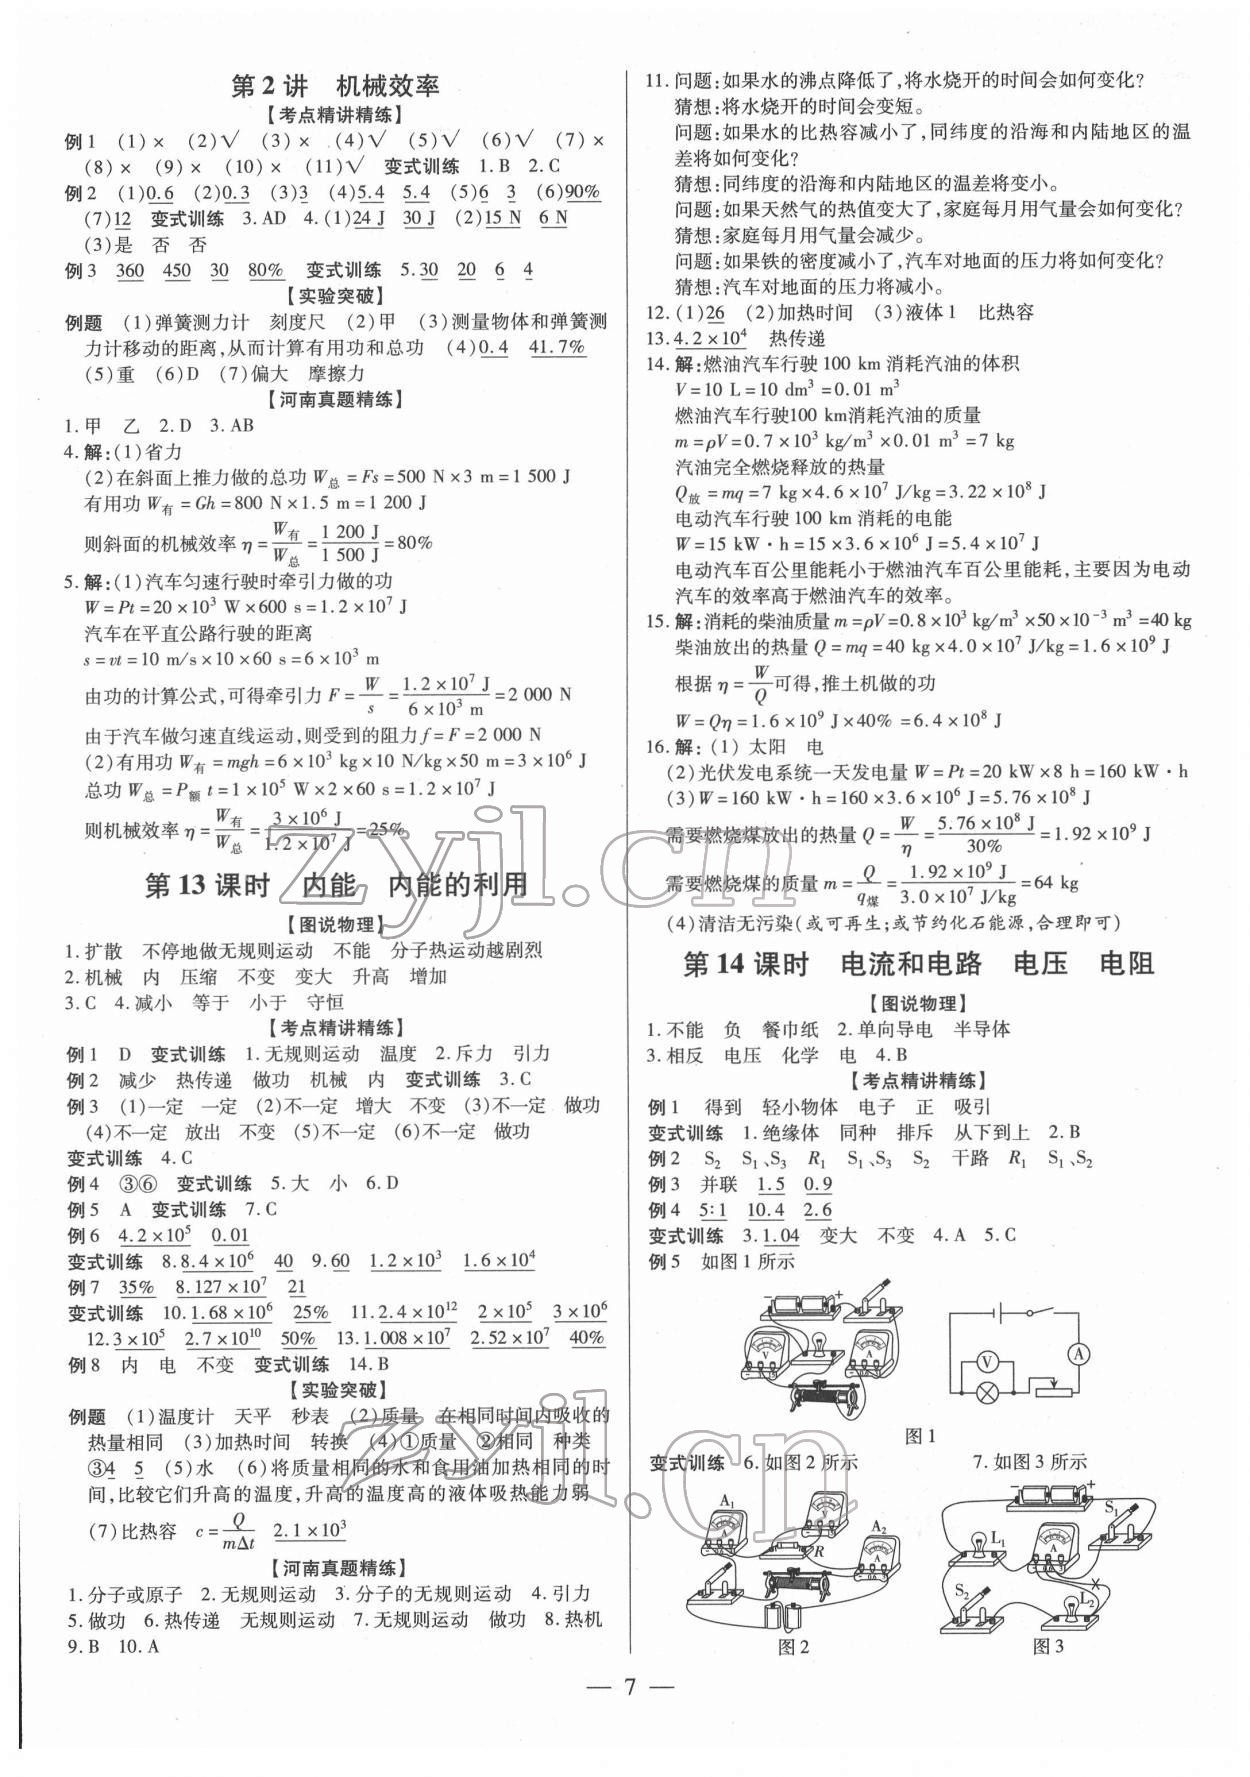 第2讲　机械效率
【考点精讲精练】
例1　(1)×　(2)√　(3)×　(4)√　(5)√　(6)√　(7)×
(8)×　(9)×　(10)×　(11)√　变式训练　1.B　2.C
例2　(1)0.6　(2)0.3　(3)3　(4)5.4　5.4　(5)6　3　(6)90%
(7)12　变式训练　3.AD　4.(1)24 J　30 J　(2)15 N　6 N
(3)是　否　否
例3　360　450　30　80%　变式训练　5.30　20　6　4
【实验突破】
例题　(1)弹簧测力计　刻度尺　(2)甲　(3)测量物体和弹簧测
力计移动的距离,从而计算有用功和总功　(4)0.4　41.7%
(5)重　(6)D　(7)偏大　摩擦力
【河南真题精练】
1.甲　乙　2.D　3.AB
4.解:(1)省力
(2)在斜面上推力做的总功 W总=Fs=500 N×3 m=1 500 J
有用功 W有=Gh=800 N×1.5 m=1 200 J
则斜面的机械效率 η=W有/W总=1 200 J/1 500 J=80%
5.解:(1)汽车匀速行驶时牵引力做的功
W=Pt=20×10³ W×600 s=1.2×10⁷ J
汽车在平直公路行驶的距离
s=vt=10 m/s×10×60 s=6×10³ m
由功的计算公式,可得牵引力 F=W/s=1.2×10⁷ J/6×10³ m=2 000 N
由于汽车做匀速直线运动,则受到的阻力 f=F=2 000 N
(2)有用功 W有=mgh=6×10³ kg×10 N/kg×50 m=3×10⁶ J
总功 W总=P额 t=1×10⁵ W×2×60 s=1.2×10⁷ J
则机械效率 η=W有/W总=3×10⁶ J/1.2×10⁷ J=25%
第13课时　内能　内能的利用
【图说物理】
1.扩散　不停地做无规则运动　不能　分子热运动越剧烈
2.机械　内　压缩　不变　变大　升高　增加
3.C　4.减小　等于　小于　守恒
【考点精讲精练】
例1　D　变式训练　1.无规则运动　温度　2.斥力　引力
例2　减少　热传递　做功　机械　内　变式训练　3.C
例3　(1)一定　一定　(2)不一定　增大　不变　(3)不一定　做功
(4)不一定　放出　不变　(5)不一定　(6)不一定　做功
变式训练　4.C
例4　③⑥　变式训练　5.大　小　6.D
例5　A　变式训练　7.C
例6　4.2×10⁵　0.01
变式训练　8.8.4×10⁶　40　9.60　1.2×10³　1.6×10⁴
例7　35%　8.127×10⁷　21
变式训练　10.1.68×10⁶　25%　11.2.4×10¹²　2×10⁵　3×10⁶
12.3×10⁵　2.7×10¹⁰　50%　13.1.008×10⁷　2.52×10⁷　40%
例8　内　电　不变　变式训练　14.B
【实验突破】
例题　(1)温度计　天平　秒表　(2)质量　在相同时间内吸收的
热量相同　(3)加热时间　转换　(4)①质量　②相同　种类
③4　5　(5)水　(6)将质量相同的水和食用油加热相同的时
间,比较它们升高的温度,升高的温度高的液体吸热能力弱
(7)比热容　c=Q/mΔt　2.1×10³
【河南真题精练】
1.分子或原子　2.无规则运动　3.分子的无规则运动　4.引力
5.做功　6.热传递　无规则运动　7.无规则运动　做功　8.热机
9.B　10.A
11.问题:如果水的沸点降低了,将水烧开的时间会如何变化?
猜想:将水烧开的时间会变短。
问题:如果水的比热容减小了,同纬度的沿海和内陆地区的温
差将如何变化?
猜想:同纬度的沿海和内陆地区的温差将变小。
问题:如果天然气的热值变大了,家庭每月用气量会如何变化?
猜想:家庭每月用气量会减少。
问题:如果铁的密度减小了,汽车对地面的压力将如何变化?
猜想:汽车对地面的压力将减小。
12.(1)26　(2)加热时间　(3)液体1　比热容
13.4.2×10⁴　热传递
14.解:燃油汽车行驶100 km消耗汽油的体积
V=10 L=10 dm³=0.01 m³
燃油汽车行驶100 km消耗汽油的质量
m=ρV=0.7×10³ kg/m³×0.01 m³=7 kg
汽油完全燃烧释放的热量
Q放=mq=7 kg×4.6×10⁷ J/kg=3.22×10⁸ J
电动汽车行驶100 km消耗的电能
W=15 kW·h=15×3.6×10⁶ J=5.4×10⁷ J
电动汽车百公里能耗小于燃油汽车百公里能耗,主要因为电动
汽车的效率高于燃油汽车的效率。
15.解:消耗的柴油质量 m=ρV=0.8×10³ kg/m³×50×10⁻³ m³=40 kg
柴油放出的热量 Q=mq=40 kg×4.0×10⁷ J/kg=1.6×10⁹ J
根据 η=W/Q可得,推土机做的功
W=Qη=1.6×10⁹ J×40%=6.4×10⁸ J
16.解:(1)太阳　电
(2)光伏发电系统一天发电量 W=Pt=20 kW×8 h=160 kW·h
(3)W=160 kW·h=160×3.6×10⁶ J=5.76×10⁸ J
需要燃烧煤放出的热量 Q=W/η=5.76×10⁸ J/30%=1.92×10⁹ J
需要燃烧煤的质量 m=Q/q煤=1.92×10⁹ J/3.0×10⁷ J/kg=64 kg
(4)清洁无污染(或可再生;或节约化石能源,合理即可)
第14课时　电流和电路　电压　电阻
【图说物理】
1.不能　负　餐巾纸　2.单向导电　半导体
3.相反　电压　化学　电　4.B
【考点精讲精练】
例1　得到　轻小物体　电子　正　吸引
变式训练　1.绝缘体　同种　排斥　从下到上　2.B
例2　S₂　S₁、S₃　R₁　S₁、S₃　S₂　干路　R₁　S₁、S₂
例3　并联　1.5　0.9
例4　5∶1　10.4　2.6
变式训练　3.1.04　变大　不变　4.A　5.C
例5　如图1所示
−　+　V　A　V　A
图1
变式训练　6.如图2所示　7.如图3所示
A₁　V　A₂　A　R
图2
−　+　S₁　L₁　A　S₂　L₂　×
图3
— 7 —
zyjl.cn
zyjl.cn